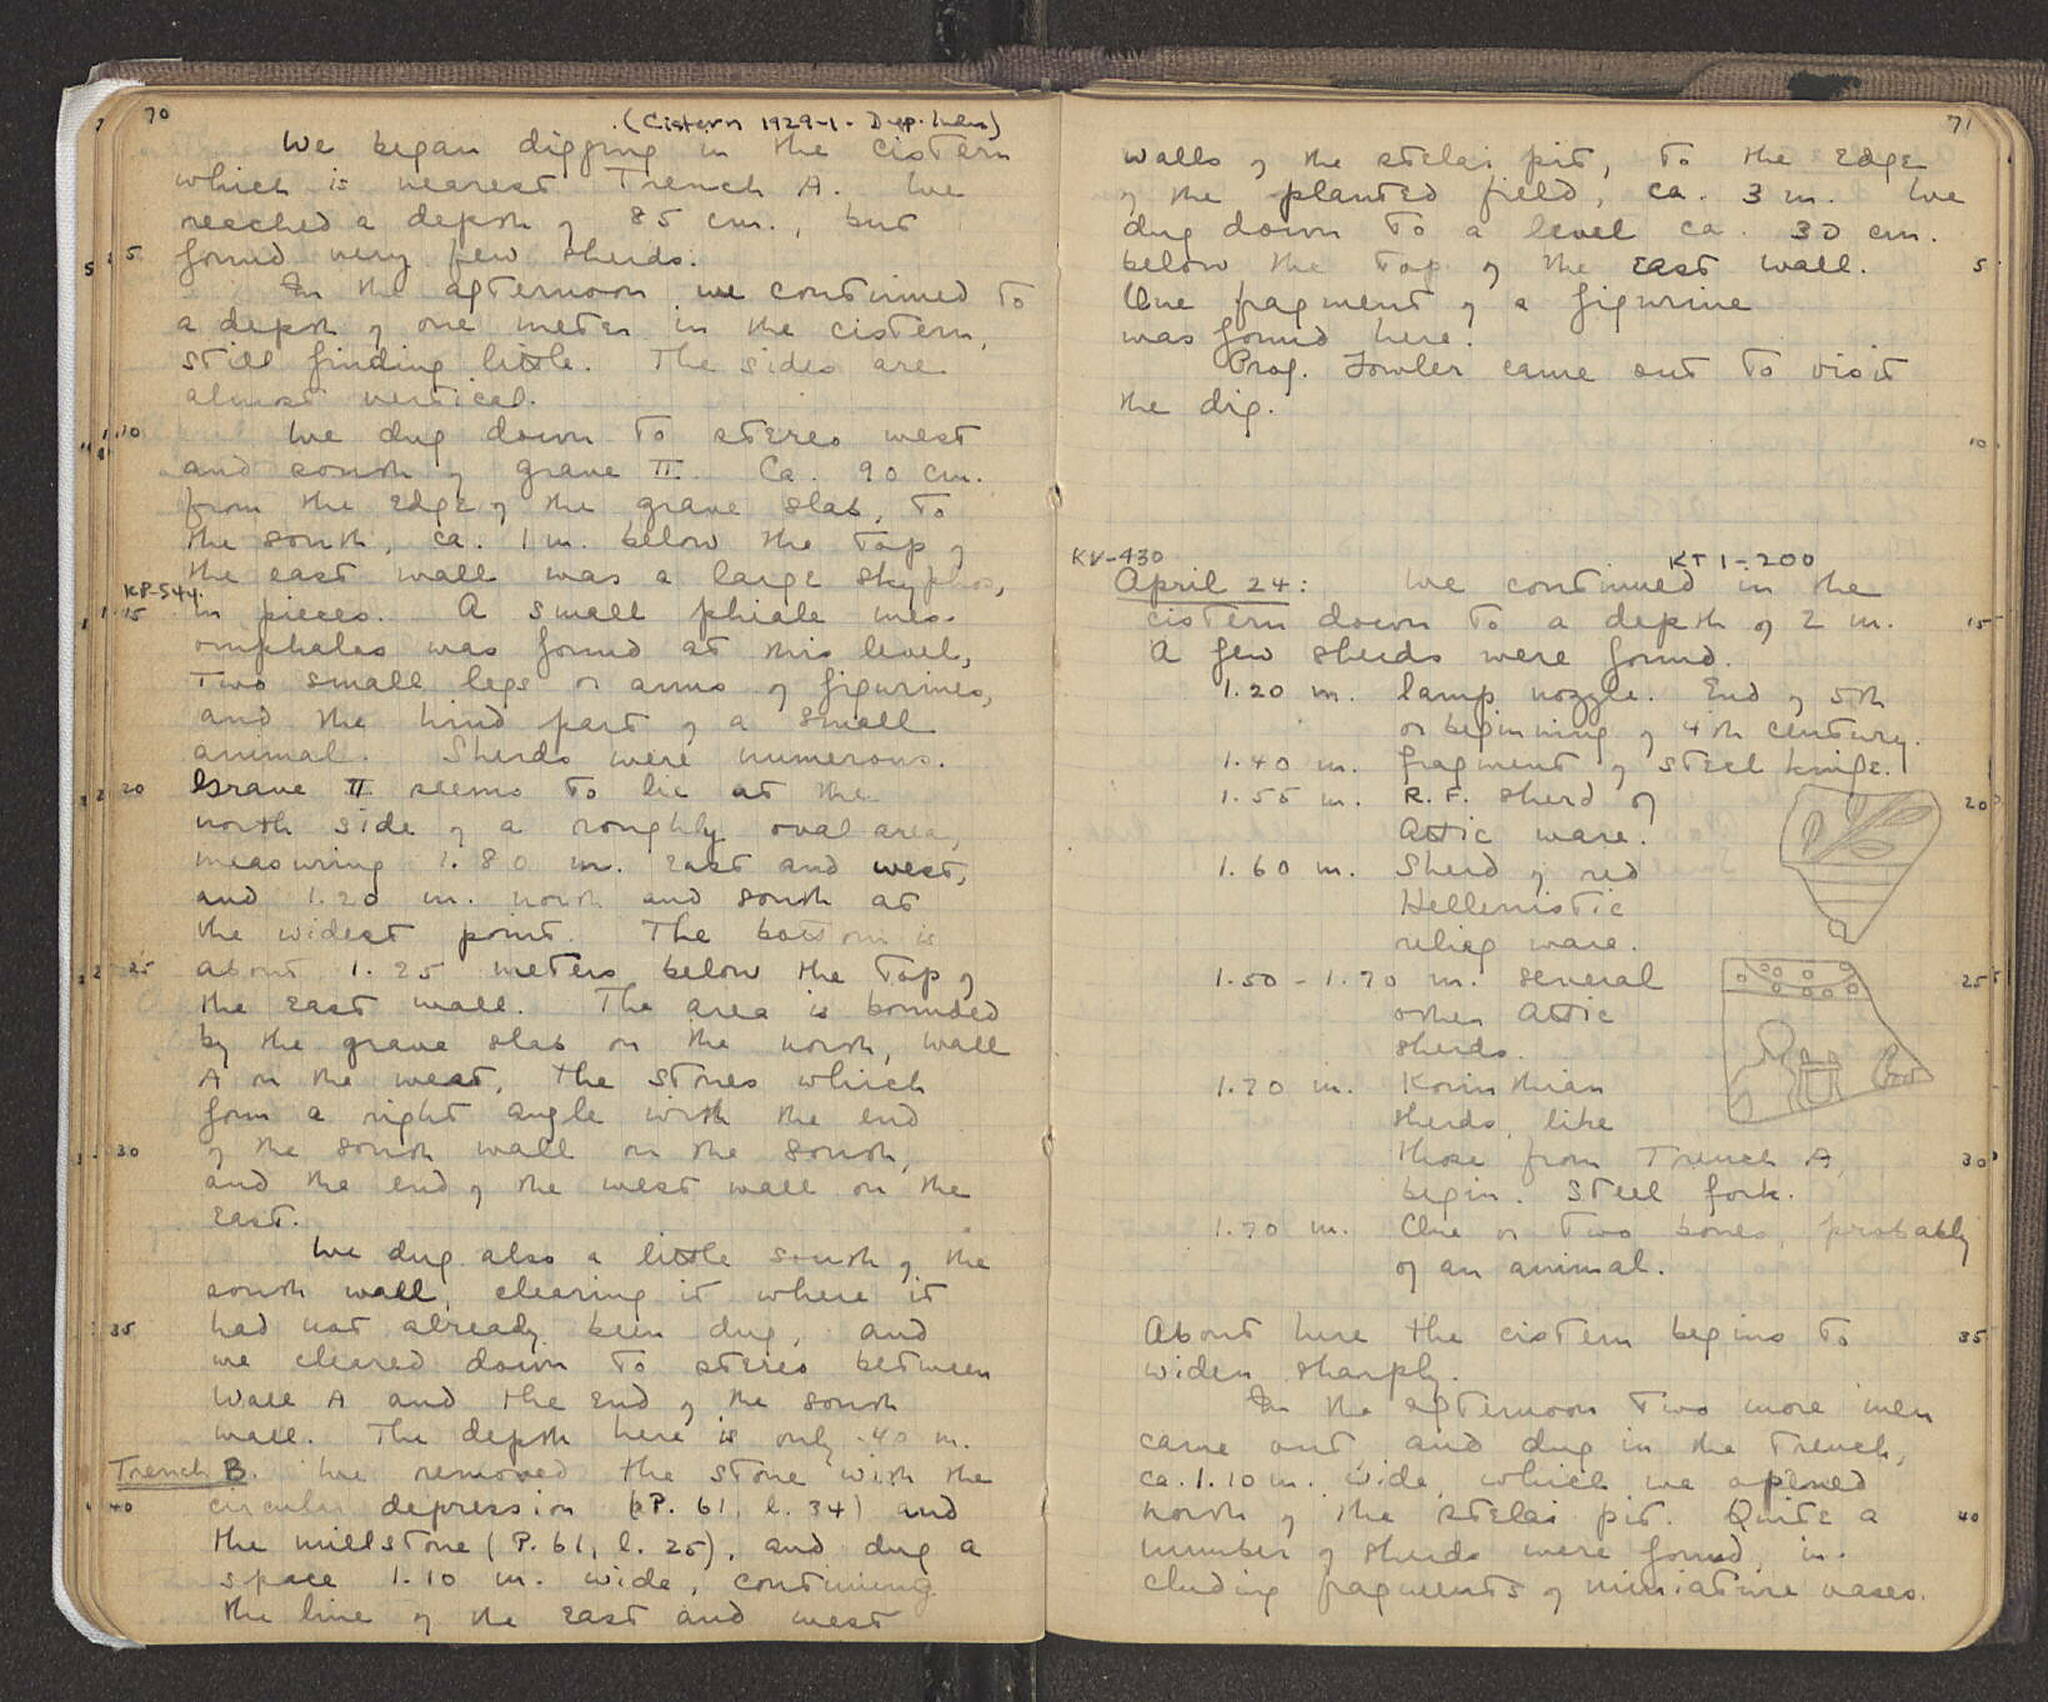 70
(Cistern 1929-1 - Dep. Index)
We began digging in the cistern
which is nearest Trench A. We
reached a depth of 85 cm., but
5 found very few sherds.
In the afternoon we continued to
a depth of one meter in the cistern,
still finding little. The sides are
almost vertical.
10 We dug down to stereo west
and south of grave II. Ca. 90 cm.
from the edge of the grave slab, to
the south, ca. 1 m. below the top of
the east wall was a large skyphos,
KP-544.
15 in pieces. A small phiale mes-
omphalos was found at this level,
Two small legs or arms of figurines,
and the hind part of a small
animal. Sherds were numerous.
20 Grave II seems to lie at the
north side of a roughly oval area,
measuring 1.80 m. east and west,
and 1.20 m. north and south at
the widest point. The bottom is
25 about 1.25 meters below the top of
the east wall. The area is bounded
by the grave slab on the north, wall
A on the west, the stones which
form a right angle with the end
30 of the south wall on the south,
and the end of the west wall on the
east.
We dug also a little south of the
south wall, clearing it where it
35 had not already been dug, and
we cleared down to stereo between
Wall A and the end of the south
wall. The depth here is only .40 m.
Trench B. We removed the stone with the
40 circular depression (P. 61, l. 34) and
the millstone (P. 61, l. 25), and dug a
space 1.10 m. wide, continuing
the line of the east and west
71
walls of the stelai pit, to the edge
of the planted field, ca. 3 m. We
dug down to a level ca. 30 cm.
below the top of the east wall. 5
One fragment of a figurine
was found here.
Prof. Fowler came out to visit
the dig.
10
KV-430
KT 1-200
April 24: We continued in the
cistern down to a depth of 2 m. 15
A few sherds were found.
1.20 m. lamp nozzle. End of 5th
or beginning of 4th century.
1.40 m. fragment of steel knife.
1.55 m. R.F. sherd of 20
Attic ware.
1.60 m. Sherd of red
Hellenistic
relief ware.
1.50 - 1.70 m. several 25
other Attic
sherds.
1.70 m. Korinthian
sherds, like
those from Trench A, 30
begin. Steel fork.
1.70 m. One or two bones, probably
of an animal.
About here the cistern begins to 35
widen sharply.
In the afternoon two more men
came out and dug in the trench,
ca. 1.10 m. wide, which we opened
north of the stelai pit. Quite a 40
number of sherds were found, in-
cluding fragments of miniature vases.